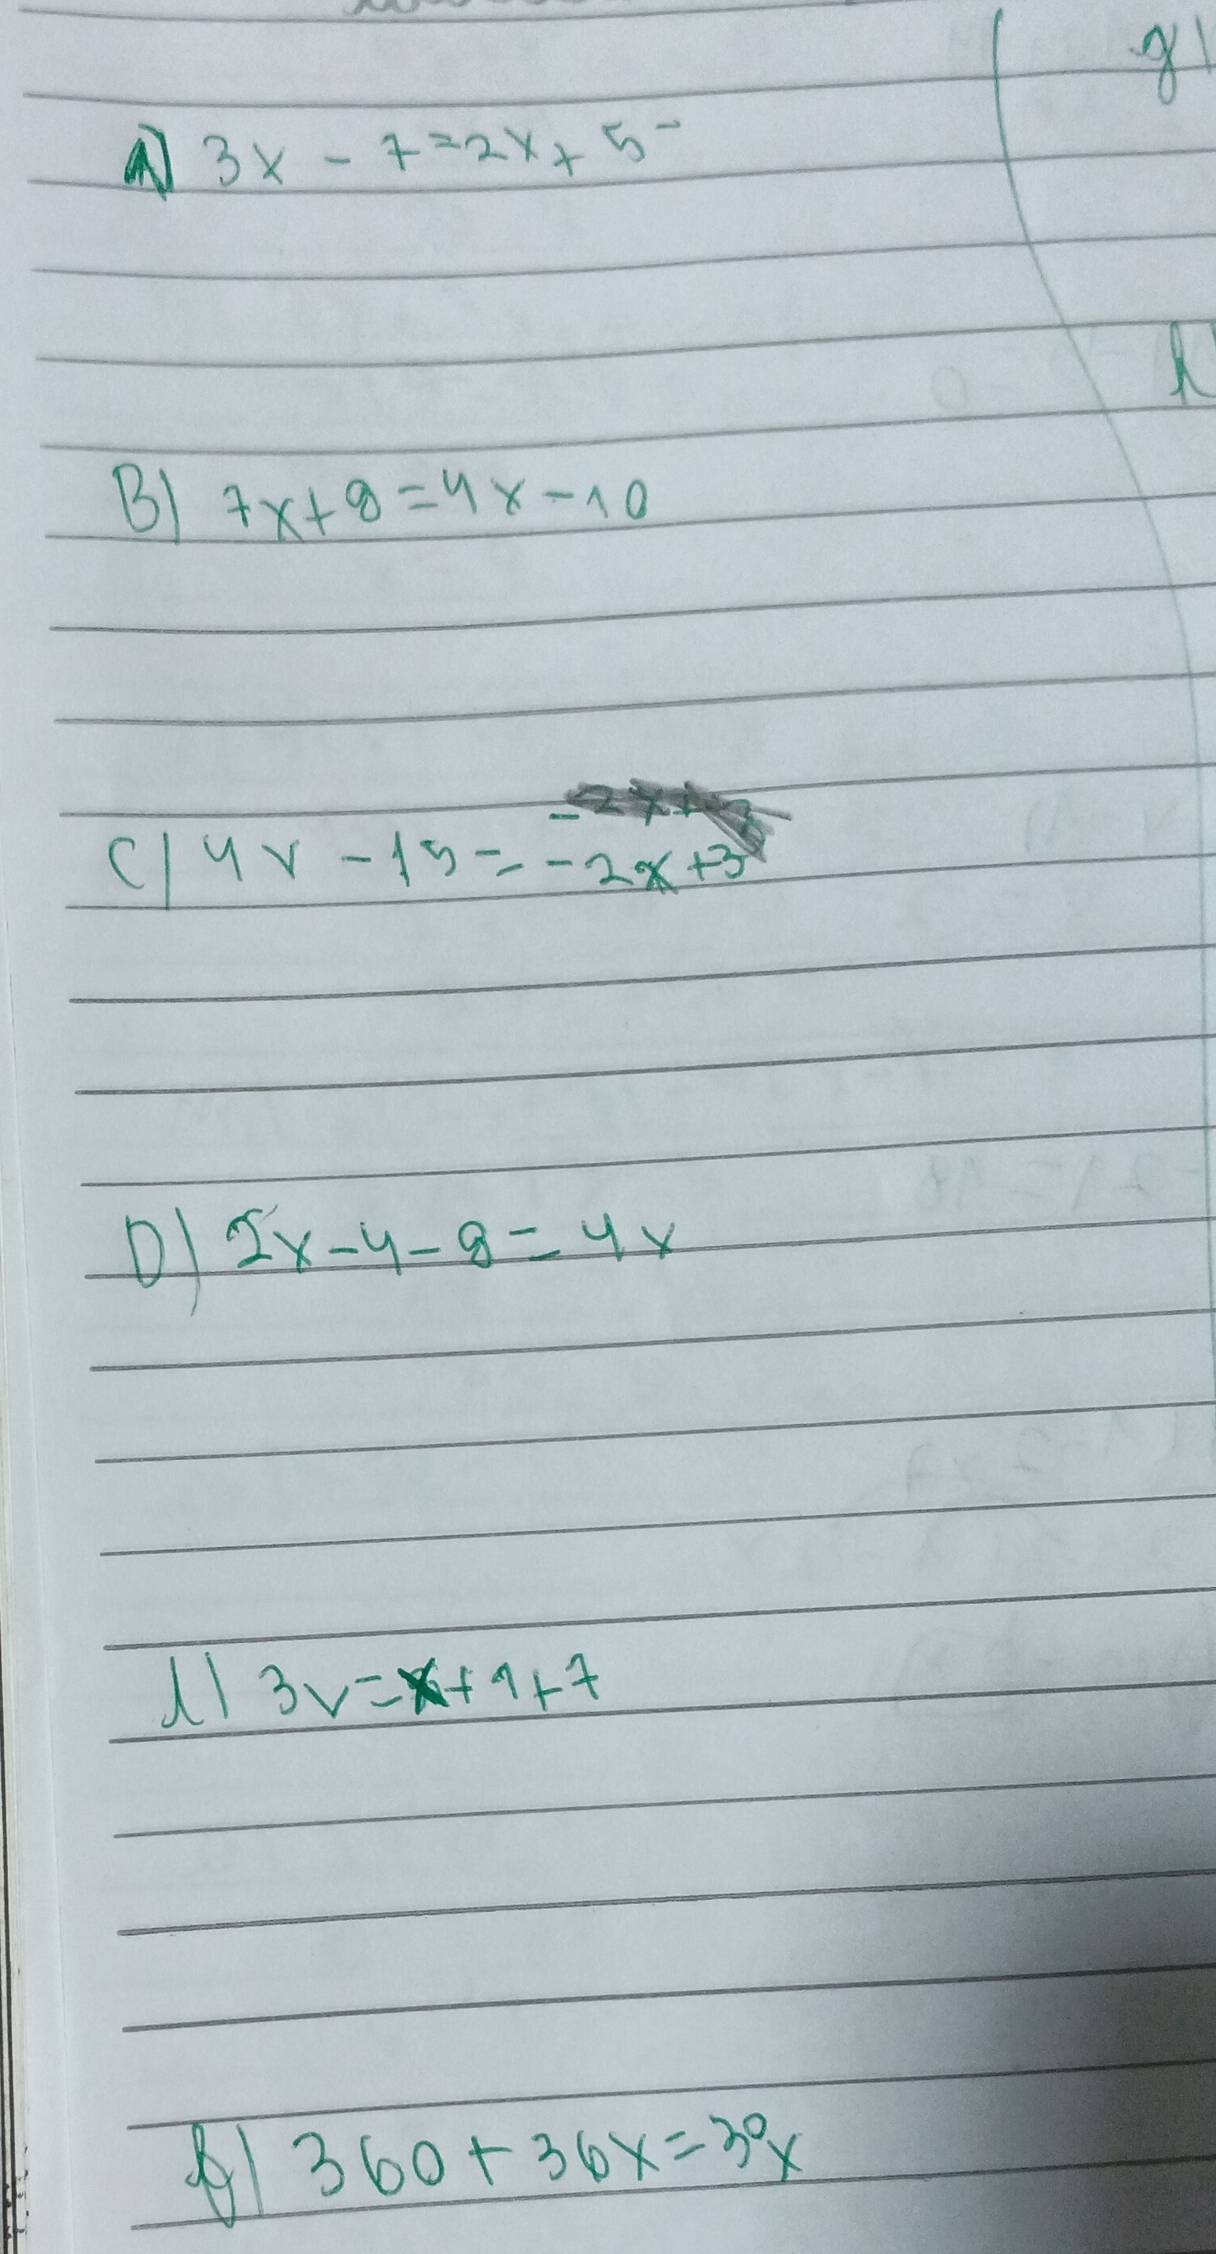 g)
A) 3x - 7 = 2x + 5
h
B) 7x + 8 = 4x - 10
C) 4x - 15 = -2x + 3
D) 2x - 4 - 8 = 4x
l) 3x = x + 1 + 7
f) 360 + 36x = 30x